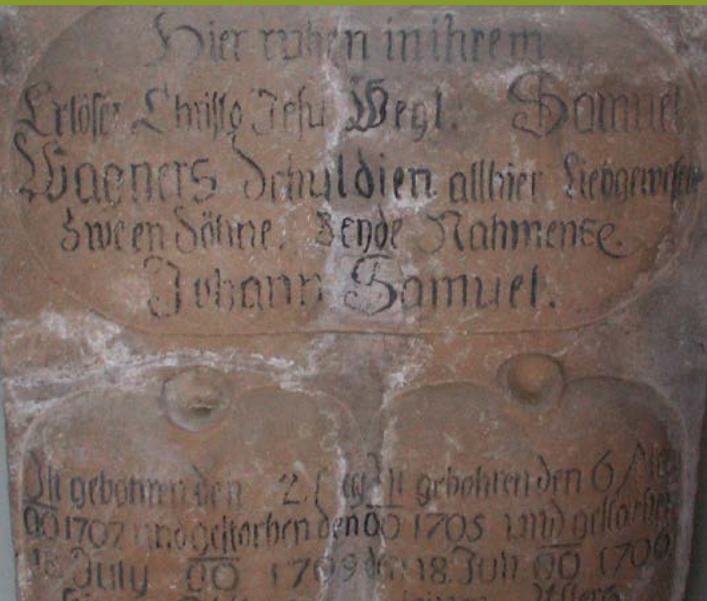 Hier ruhen in ihrem
Erlöser Christo Jesu Wegl. Samuel
Wagners Schuldien allhier Liebgewesene
zween Söhne. Beyde Nahmens
Johann Samuel.
Ist gebohren den 2.
1707 und gestorben den
18 July 1709
Ist gebohren den 6
1705 und gestorben
den 18. Juli 1706